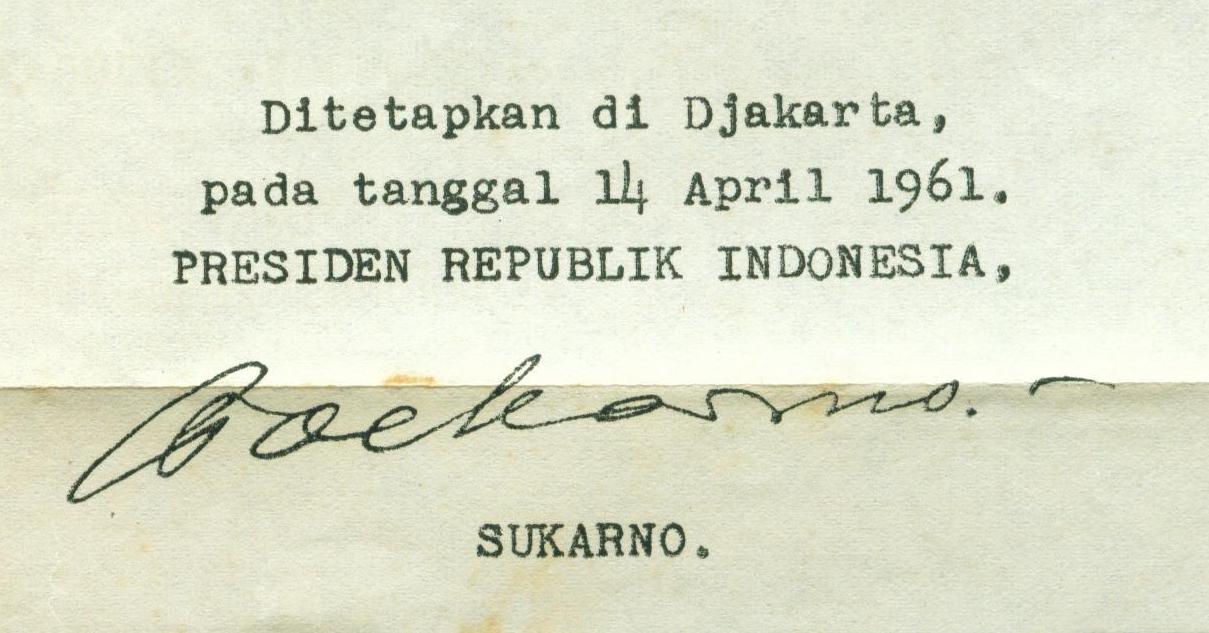 Ditetapkan di Djakarta,
pada tanggal 14 April 1961.
PRESIDEN REPUBLIK INDONESIA,
Soekarno.
SUKARNO.